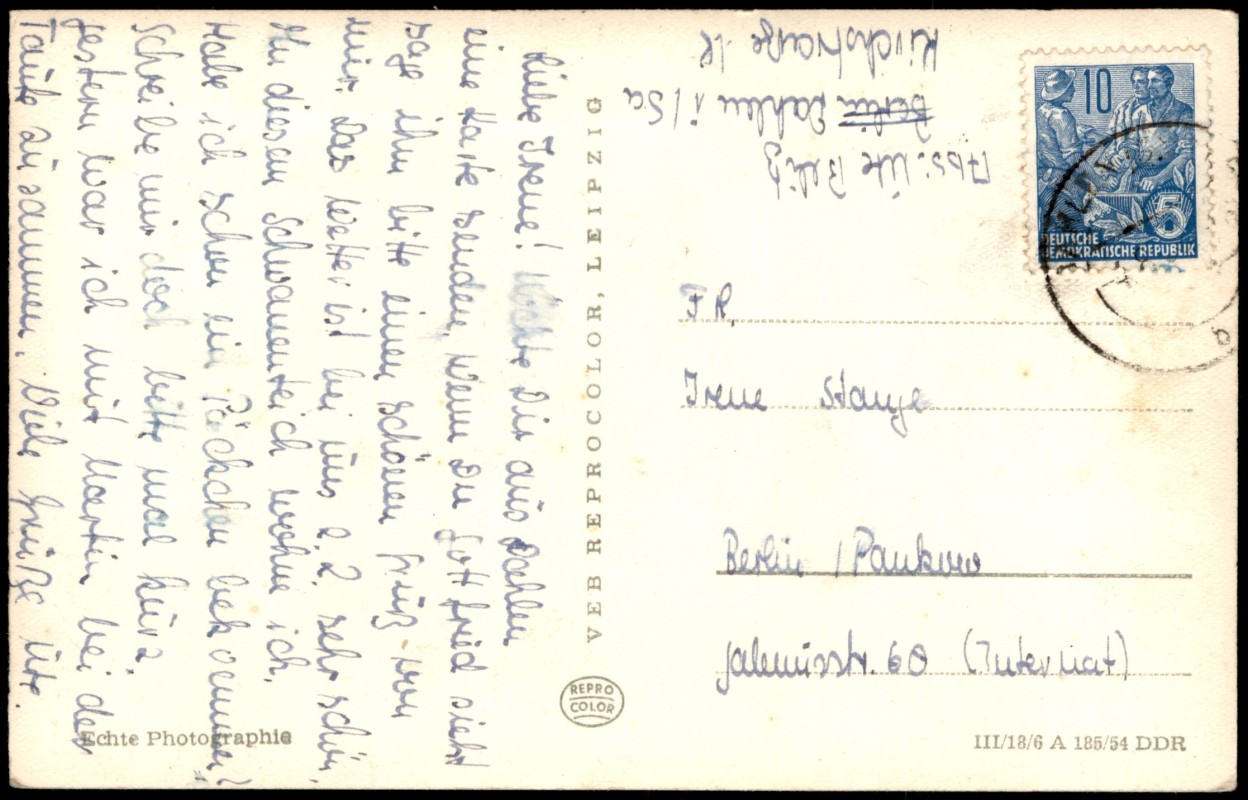 Liebe Irene! Möchte Dir aus Dahlen
eine Karte senden, wenn Du Gottfried siehst
sage ihm bitte einen schönen Gruß von
mir. Das Wetter ist bei uns z. Z. sehr schön,
An diesem Schwanenteich wohne ich.
Habe ich schon ein Päckchen bekommen?
Schreibe mir doch bitte mal kurz.
Gestern war ich mit Martin bei der
Tante zusammen. Viele Grüße Ute.
Echte Photographie
VEB REPROCOLOR, LEIPZIG
REPRO
COLOR
Abs.: Ute
Berlin Dahlen i/Sa
Kirchstraße
10
5
DEUTSCHE
DEMOKRATISCHE REPUBLIK
FR.
Irene Stange
Berlin / Pankow
str. 60 (Internat)
III/18/6 A 185/54 DDR